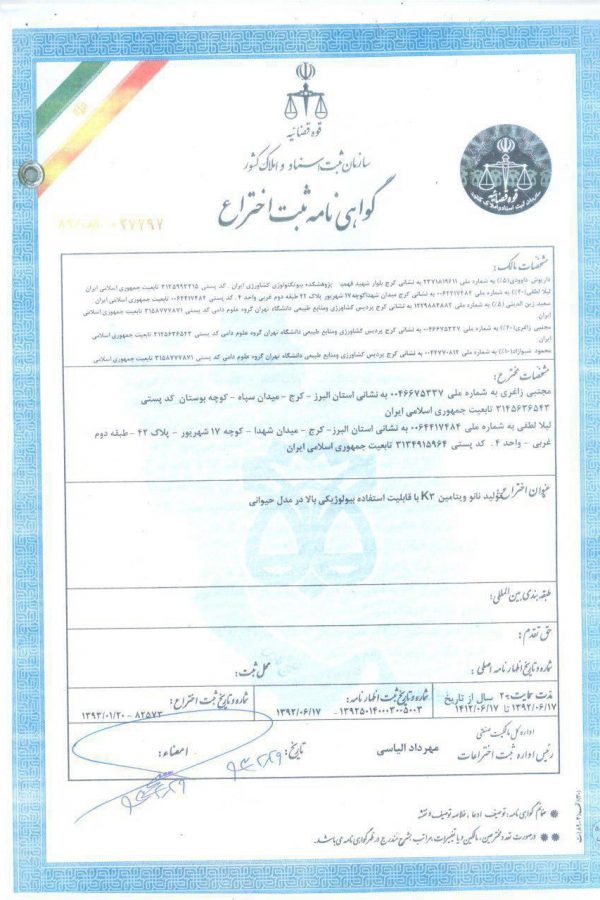 قوه قضائیه
سازمان ثبت اسناد و املاک کشور
گواهی نامه ثبت اختراع
قوه قضائیه
سازمان ثبت اسناد و املاک کشور
۰۳۷۷۹۷
مشخصات مالک :
داریوش داوودی(۵٪) به شماره ملی ۲۳۷۱۸۱۹۶۱۱ به نشانی کرج بلوار شهید فهمیده پژوهشکده بیوتکنولوژی کشاورزی ایران. کد پستی ۳۱۳۵۹۳۳۱۵ تابعیت جمهوری اسلامی ایران
لیلا لطفی(۴۰٪) به شماره ملی ۰۰۶۴۴۱۷۴۸۴ به نشانی کرج میدان شهدا کوچه ۱۷ شهریور پلاک ۴۲ طبقه دوم غربی واحد ۴.
سعید زین الدینی (۵٪) به شماره ملی به نشانی کرج پردیس کشاورزی ومنابع طبیعی دانشگاه تهران گروه علوم دامی کد پستی ۳۱۵۸۷۷۷۸۷۱ تابعیت جمهوری اسلامی ایران
مجتبی زاغری(۴۰٪) به شماره ملی ۰۰۴۶۶۷۵۳۳۷ به نشانی کرج پردیس کشاورزی ومنابع طبیعی دانشگاه تهران گروه علوم دامی کد پستی ۳۱۴۵۶۳۶۵۴۳ تابعیت جمهوری اسلامی
ایران
محمود شیوازاد(۱۰٪) به شماره ملی ۰۰۴۴۷۷۰۸۱۲ به نشانی کرج پردیس کشاورزی ومنابع طبیعی دانشگاه تهران گروه علوم دامی کد پستی ۳۱۵۸۷۷۷۸۷۱ تابعیت جمهوری اسلامی
مشخصات مخترع :
مجتبی زاغری به شماره ملی ۰۰۴۶۶۷۵۳۳۷ به نشانی استان البرز - کرج - میدان سپاه - کوچه بوستان کد پستی
۳۱۴۵۶۳۶۵۴۳ تابعیت جمهوری اسلامی ایران
لیلا لطفی به شماره ملی ۰۰۶۴۴۱۷۴۸۴ به نشانی استان البرز - کرج - میدان شهدا - کوچه ۱۷ شهریور - پلاک ۴۲ - طبقه دوم
غربی - واحد ۴. کد پستی ۳۱۳۴۹۱۵۹۶۴ تابعیت جمهوری اسلامی ایران
عنوان اختراع : تولید نانو ویتامین K۳ با قابلیت استفاده بیولوژیکی بالا در مدل حیوانی
طبقه بندی بین المللی :
حق تقدم :
شماره و تاریخ اظهار نامه اصلی : محل ثبت :
مدت حمایت ۲۰ سال از تاریخ
۱۳۹۲/۰۶/۱۷ تا ۱۴۱۲/۰۶/۱۷
شماره و تاریخ ثبت اظهار نامه :
۱۳۹۲۵۰۱۴۰۰۰۳۰۰۵۰۰۳ - ۱۳۹۲/۰۶/۱۷
شماره و تاریخ ثبت اختراع :
۸۲۵۷۳ - ۱۳۹۳/۰۱/۲۰
اداره کل مالکیت صنعتی
رئیس اداره ثبت اختراعات مهرداد الیاسی تاریخ : امضاء :
ضمائم گواهی نامه : توصیف ، ادعا ، خلاصه توصیف و نقشه
درصورت تعدد مخترعین، مالکین و یا تغییرات، مراتب بشرح مندرج در ظهر گواهی نامه می باشد.